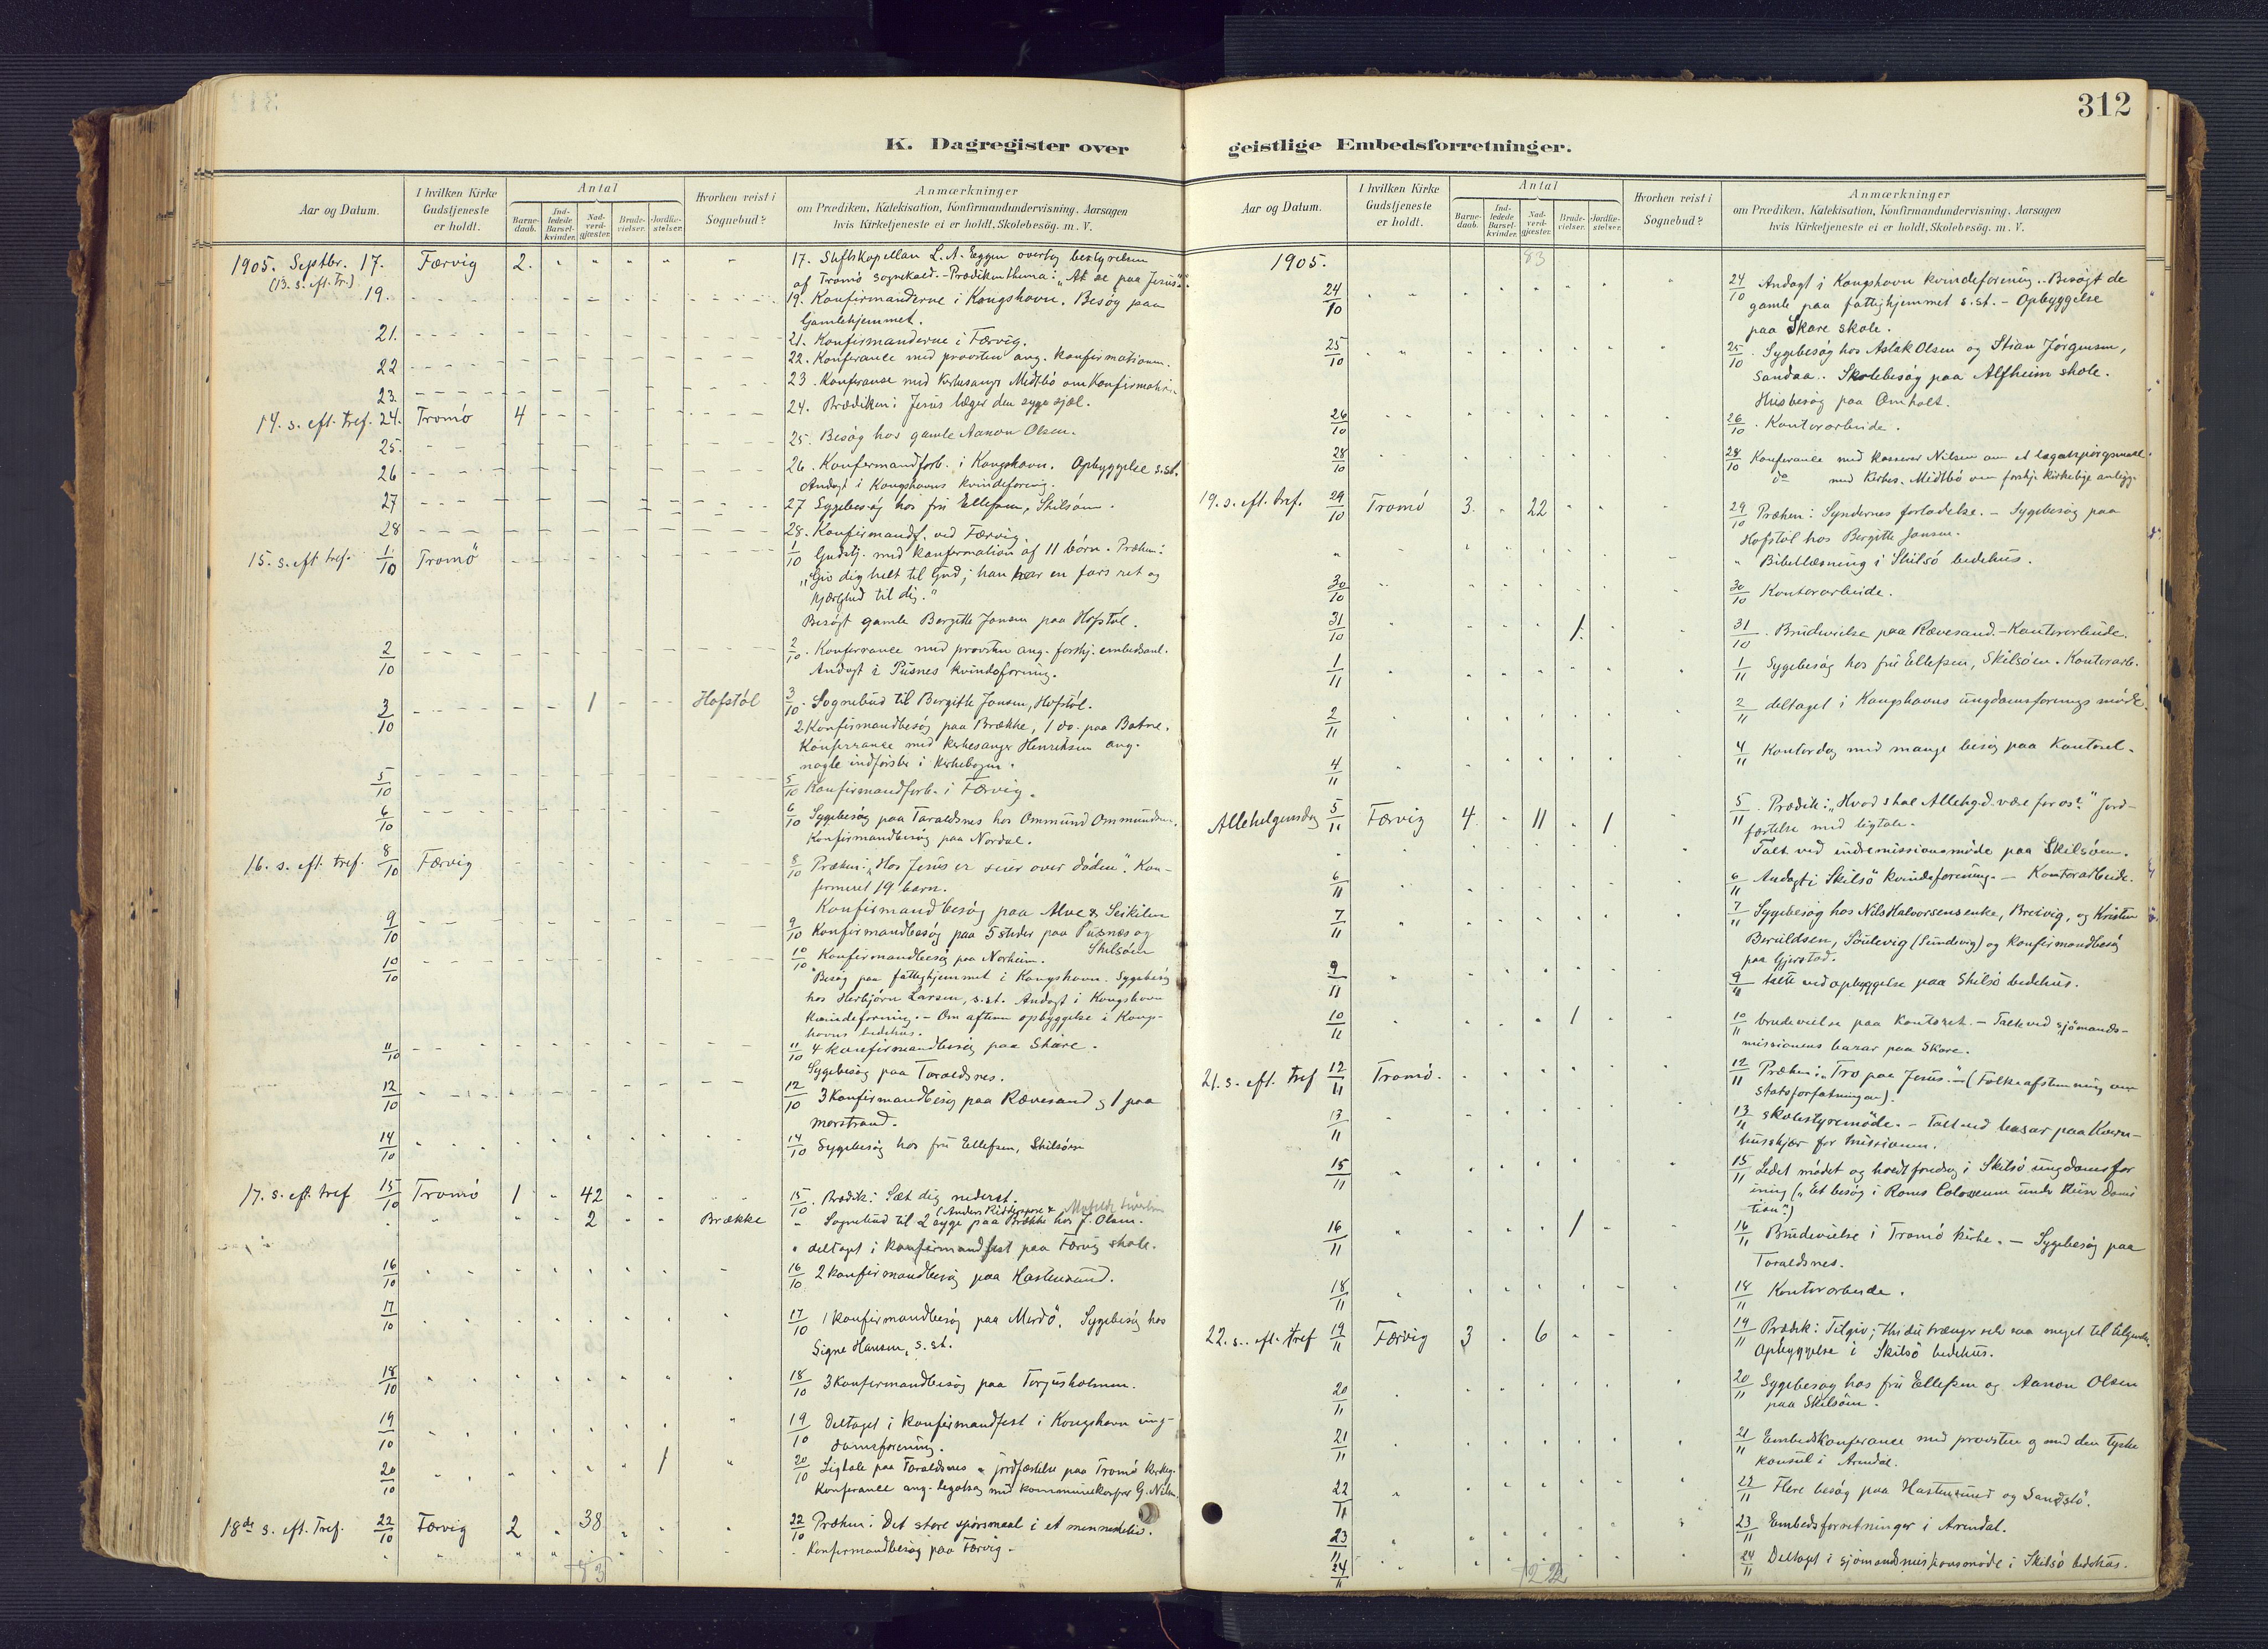 312
K. Dagregister over geistlige Embedsforretninger.
Aar og Datum.
I hvilken Kirke Gudstjeneste er holdt.
Antal
Barne-daab.
Ind-ledede Barsel-kvinder.
Nad-verd-gjæster.
Brude-vielser.
Jordfæ-stelser.
Hvorhen reist i Sognebud?
Anmærkninger
om Prædiken, Katekisation, Konfirmandundervisning, Aarsagen
hvis Kirketjeneste ei er holdt, Skolebesög. m. V.
1905. Septbr. 17. Færvig 2. 17. Stiftskapellan L. A. Eggen overtog bestyrelsen
(13. s. eft. Tr.) af Tromö sognekald. - Prædikenthema: "At se paa Jesus".
19. 19. Konfirmanderne i Kongshavn. Besög paa
Gamlehjemmet.
21. 21. Konfirmanderne i Færvig.
22 22. Konferance med provsten ang. konfirmationen.
23. 23. Konferanse med kirkesanger Midtbö om Konfirmation
14. s. eft. tref. 24. Tromö 4 24. Prædiken: Jesus læger den syge sjæl.
25. 25. Besög hos gamle Aanon Olsen.
26 26. Konfermandforb. i Kongshavn. Opbyggelse s.st.
Andagt i Kongshavns kvindeforenig.
27 27 Sygebesög hos fru Ellefsen, Skilsöen.
28 28. Konfirmandf. ved Færvig.
15. s. eft tref. 1/10 Tromö 1/10 Gudstj. med konfermation af 11 börn. Præken:
"Giv dig helt til Gud; han har en fars ret og
kjærlighed til dig."
Besögt gamle Bergitte Jonsen paa Hofstöl.
2/10 2/10. Konferrance med provsten ang. forskj. embedsanl.
Andagt i Pusnes kvindeforning.
3/10 1 Hofstöl 3/10. Sognebud til Bergitte Jonsen, Hofstöl.
2 Konfirmandbesög paa Brække, 1 do. paa Botne.
Konferrance med kirkesanger Henriksen ang.
nogle indförsler i kirkebogen.
5/10 5/10 Konfirmandforb. i Færvig.
6/10 6/10 Sygebesög paa Taraldsnes hos Ommund Ommundsen.
Konfirmandbesög paa Nordal.
16. s. eft. tref. 8/10 Færvig 8/10 Præken: "Hos Jesus er seier over döden". Kon-
fermeret 19 barn.
Konfirmandbesög paa Alve &
9/10 9/10 Konfirmandbesög paa 5 steder paa Pusnes og
Skilsöen
10/10 10/10 Konfirmandbesög paa Norheim.
Besög paa fattighjemmet i Kongshavn. Sygebesög
hos Herbjörn Larsen, s.st. Andagt i Kongshavn
Kvindeforning. - Om aftenen opbyggelse i Kongs-
havns bedehus.
11/10 11/10 4 konfirmandbesög paa Skare.
Sygebesög paa Taraldsnes.
12/10 12/10 3 Konfirmandbesög paa Rævesand & 1 paa
morstrand.
14/10 14/10 Sygebesög hos fru Ellefsen, Skilsöen
17. s. eft tref 15/10 Tromö 1 42 15/10. Prædik: Sæt dig nederst.
2 Brække Sognebud til 2 syge paa Brække hos J. Olsen.
deltaget i konfirmandfest paa Færvig skole.
16/10 16/10 2 konfirmandbesög paa Hastensund.
17/10 17/10 1 konfirmandbesög paa Merdö. Sygebesög hos
Signe Hansen, s. st.
18/10 18/10 3 konfirmandbesög paa Torjusholmen.
19/10 19/10 Deltaget i konfirmandfest i Kongshavn ung-
domsforening.
20/10 1 20/10 Ligtale paa Taraldsnes & jordfæstelse paa Tromö kirkeg.
Konferance ang. legatsag med kommunekasser G. Nilsen.
18de s. eft. Tref. 22/10 Færvig 2 38 22/10 Præken: Det store spörsmaal i et menneskeliv.
Konfermandbesög paa Færvig.
83
1905. 83
24/10 24/10 Andagt i Kongshavn kvindeforening. - Besögt de
gamle paa fattighjemmet s.st. - Opbyggelse
paa Skare skole.
25/10 25/10. Sygebesög hos Aslak Olsen og Stian Jörgensen,
Sandaa. Skolebesög paa Alfheim skole.
Husbesög paa Omholt.
26/10 26/10. Kontorarbeide.
28/10 28/10 Konferance med kasserer Nilsen om et legatspörgsmaal
do med Kirkes. Midtbö om forskj. kirkelige anligg.
19. s. eft. tref. 29/10 Tromö 3. 22 29/10 Præken: Syndernes forladelse. - Sygebesög paa
Hofstöl hos Bergitte Jonsen.
Bibellæsning i Skilsö bedehus.
30/10 30/10 Kontorarbeide.
31/10 1. 31/10. Brudevielse paa Rævesand. - Kontorarbeide.
1/11 1/11 Sygebesög hos fru Ellefsen, Skilsöen. Kontorarb.
2/11 2/11 deltaget i Kongshavns ungdomsforenings möde.
4/11 4/11 Kontordag med mange besög paa kontoret.
Allehelgensdag 5/11 Færvig 4 11 1 5/11. Prædik: "Hvad skal Allehgd. være for os?" Jord-
fæstelse med ligtale.
Talt ved indremissionsmöde paa Skilsöen.
6/11 6/11 Andagt i Skilsö kvindeforening. - Kontorarbeide.
7/11 7/11 Sygebesög hos Nils Halvorsens enke, Breivig, og Kristen
Beruldsen, Söulevig (Sundevig) og konfirmandbesög
paa Gjerstad.
9/11 9/11 talte ved opbyggelse paa Skilsö bedehus.
10/11 1 10/11 brudevielse paa Kontoret. - Talte ved sjömands-
missionens bazar paa Skare.
21. s. eft. tref 12/11 Tromö. 12/11 Præken: "Tro paa Jesus." - (Folkeafstemning om
statsforfatningen).
13/11 13/11 skolestyremöde. - Talt ved basar paa Kvern-
husskjær for missionen.
15/11 15/11 Ledet mödet og holdt foredrag i Skilsö ungdomsfor
ening ("Et besög i Roms Colosseum under keiser Domi
tian".)
16/11 1 16/11 Brudevielse i Tromö kirke. - Sygebesög paa
Taraldsnes.
18/11 18/11 Kontorarbeide.
22. s. eft. tref 19/11 Færvig 3 6 19/11 Prædik: Tilgiv; thi du trænger selv saa meget til tilgivelse.
Opbyggelse i Skilsö bedehus.
20/11 20/11 Sygebesög hos fru Ellefsen og Aanon Olsen
paa Skilsöen.
21/11 21/11 Embedskonferance med provsten og med den tyske
konsul i Arendal.
22/11 22/11 Flere besög paa Hastensund og Sandstö.
23/11 23/11 Embedsforretninger i Arendal.
24/11 24/11 Deltaget i sjömandsmissionsmöde i Skilsö bedehus.
122